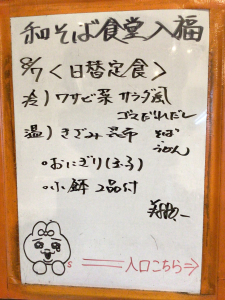 和そば食堂入福
8/7 <日替定食>
冷) ワサビ菜 サラダ風
ゴマだれだし
温) きざみ昆布 そば
うどん
・おにぎり(ふろ)
・小鉢 2品付
S
入口こちら⇒